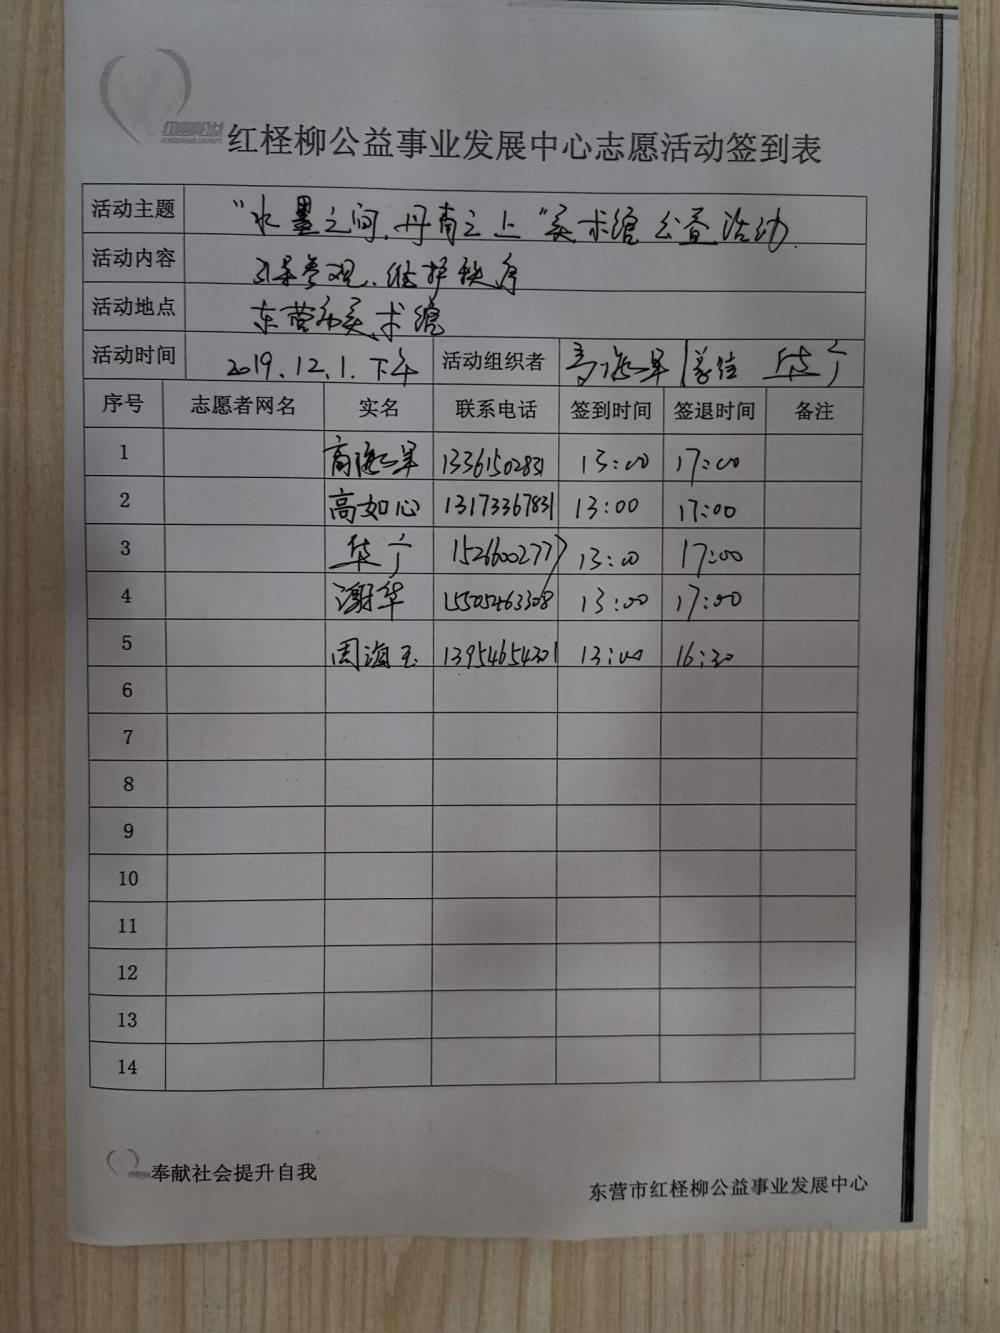 红柽柳公益事业发展中心志愿活动签到表
活动主题 "水墨之间,丹青之上"美术馆公益活动.
活动内容 引导参观、维护秩序
活动地点 东营市美术馆
活动时间 2019.12.1.下午 活动组织者
序号 志愿者网名 实名 联系电话 签到时间 签退时间 备注
1 13361502831 13:00 17:00
2 高如心 13173367831 13:00 17:00
3 15266002777 13:00 17:00
4 谢华 15505463308 13:00 17:00
5 周海玉 13954654301 13:00 16:30
6
7
8
9
10
11
12
13
14
奉献社会提升自我
东营市红柽柳公益事业发展中心